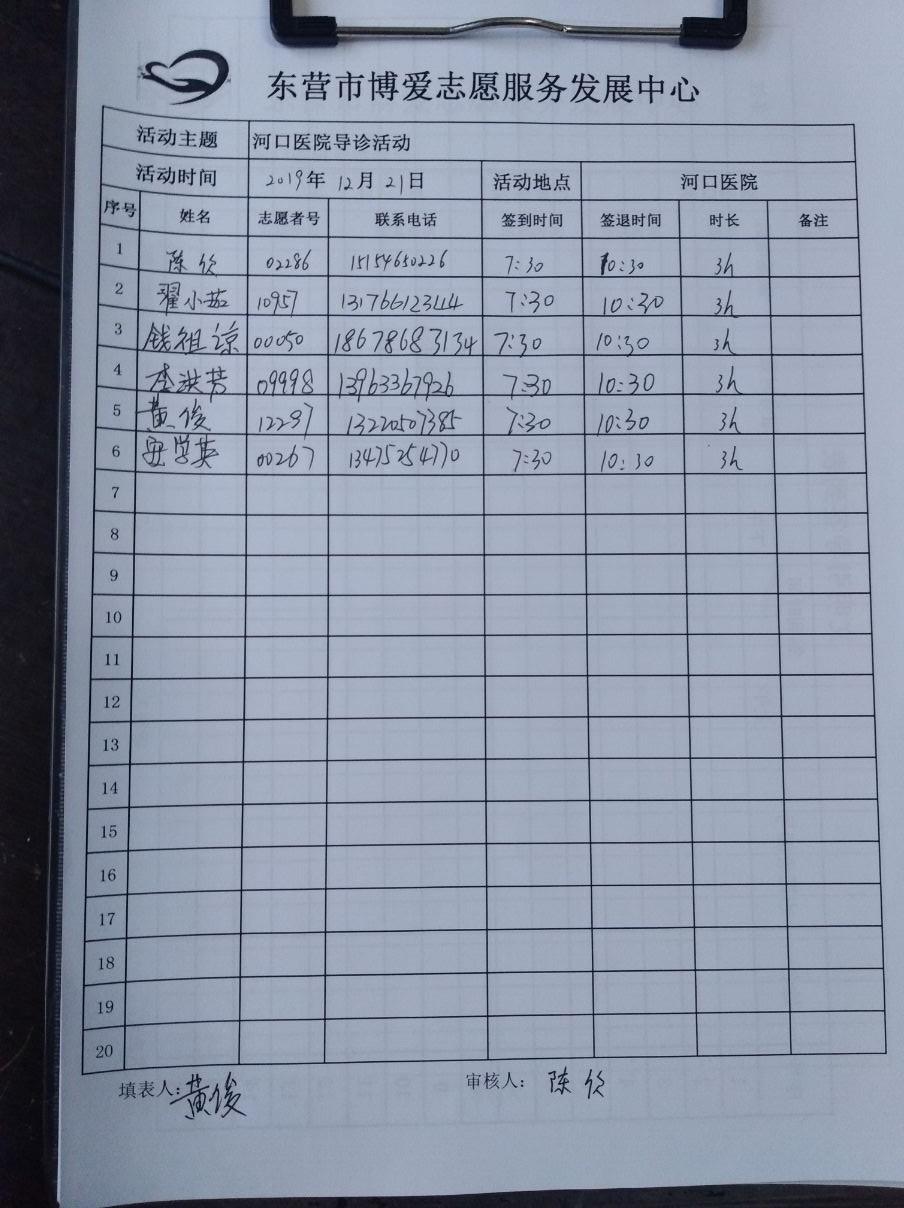 东营市博爱志愿服务发展中心
活动主题 河口医院导诊活动
活动时间 2019年 12月 21日 活动地点 河口医院
序号 姓名 志愿者号 联系电话 签到时间 签退时间 时长 备注
1 陈欣 02286 15154650226 7:30 10:30 3h
2 翟小茹 10957 13176612344 7:30 10:30 3h
3 钱祖谅 00050 18678683134 7:30 10:30 3h
4 李洪芳 09998 13963367926 7:30 10:30 3h
5 黄俊 12297 13220507385 7:30 10:30 3h
6 安学英 00267 13475254770 7:30 10:30 3h
7
8
9
10
11
12
13
14
15
16
17
18
19
20
填表人:黄俊 审核人: 陈欣